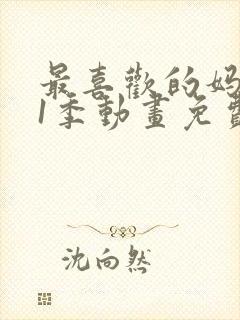 最喜歡的妈
1季動畫免費
沈向然